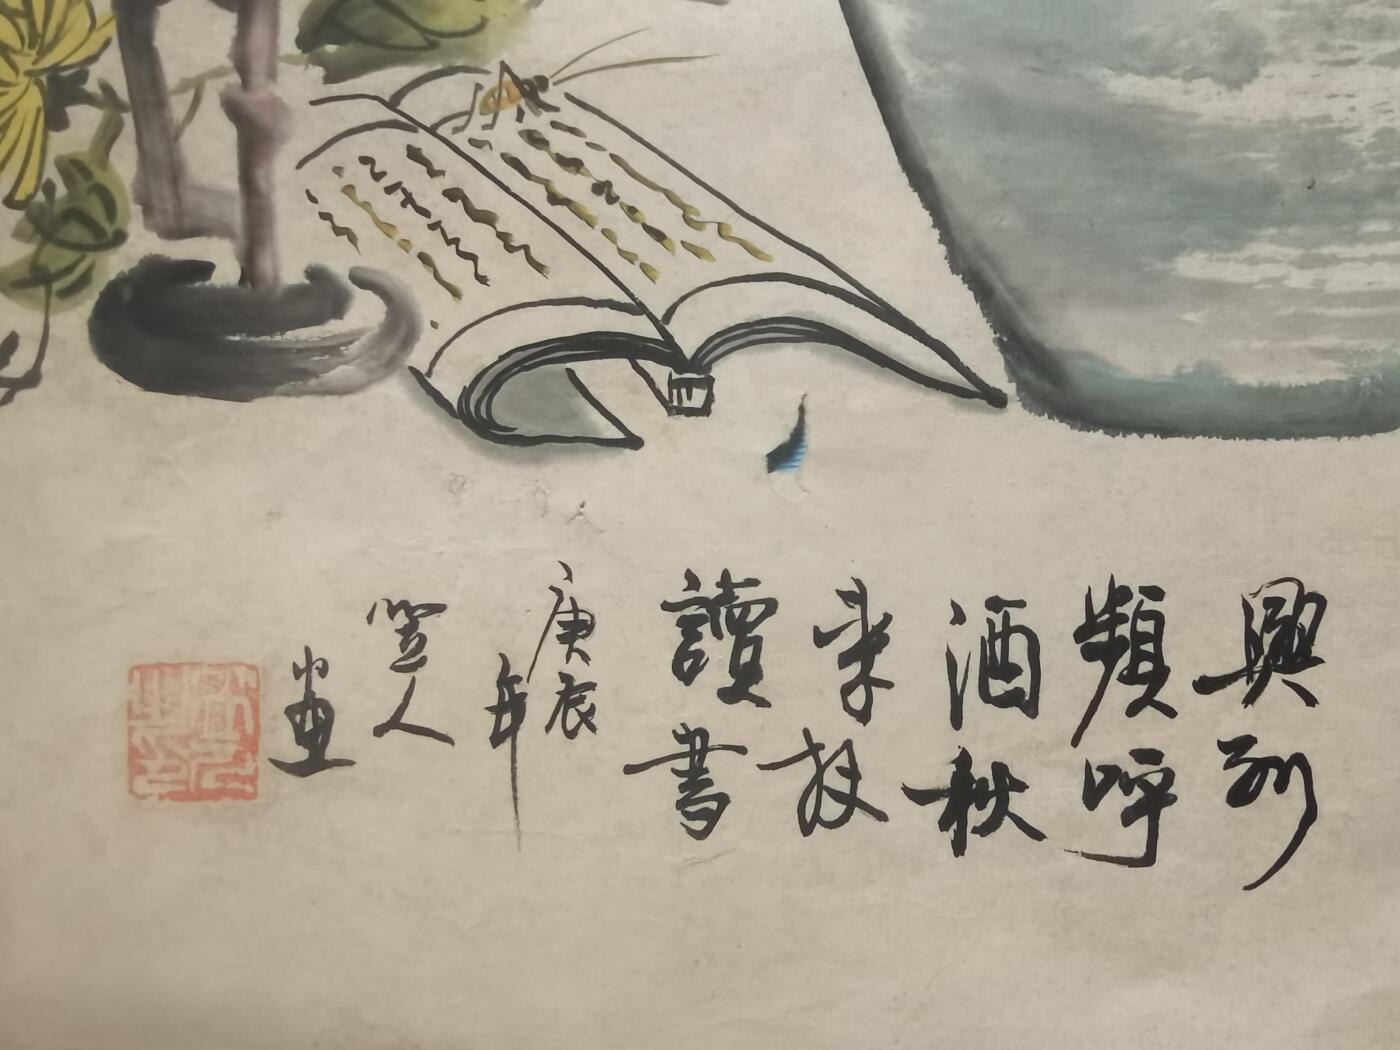 興到
頻呼
酒秋
來好
讀書
庚辰
年
笠人
畫